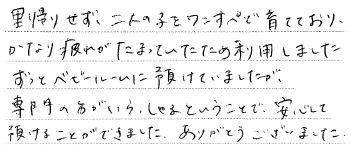 里帰りせず、二人の子をワンオペで育てており、
かなり疲れがたまっていたため利用しました
ずっとベビールームに預けていましたが、
専門の方がいらっしゃるということで、安心して
預けることができました。ありがとうございました。